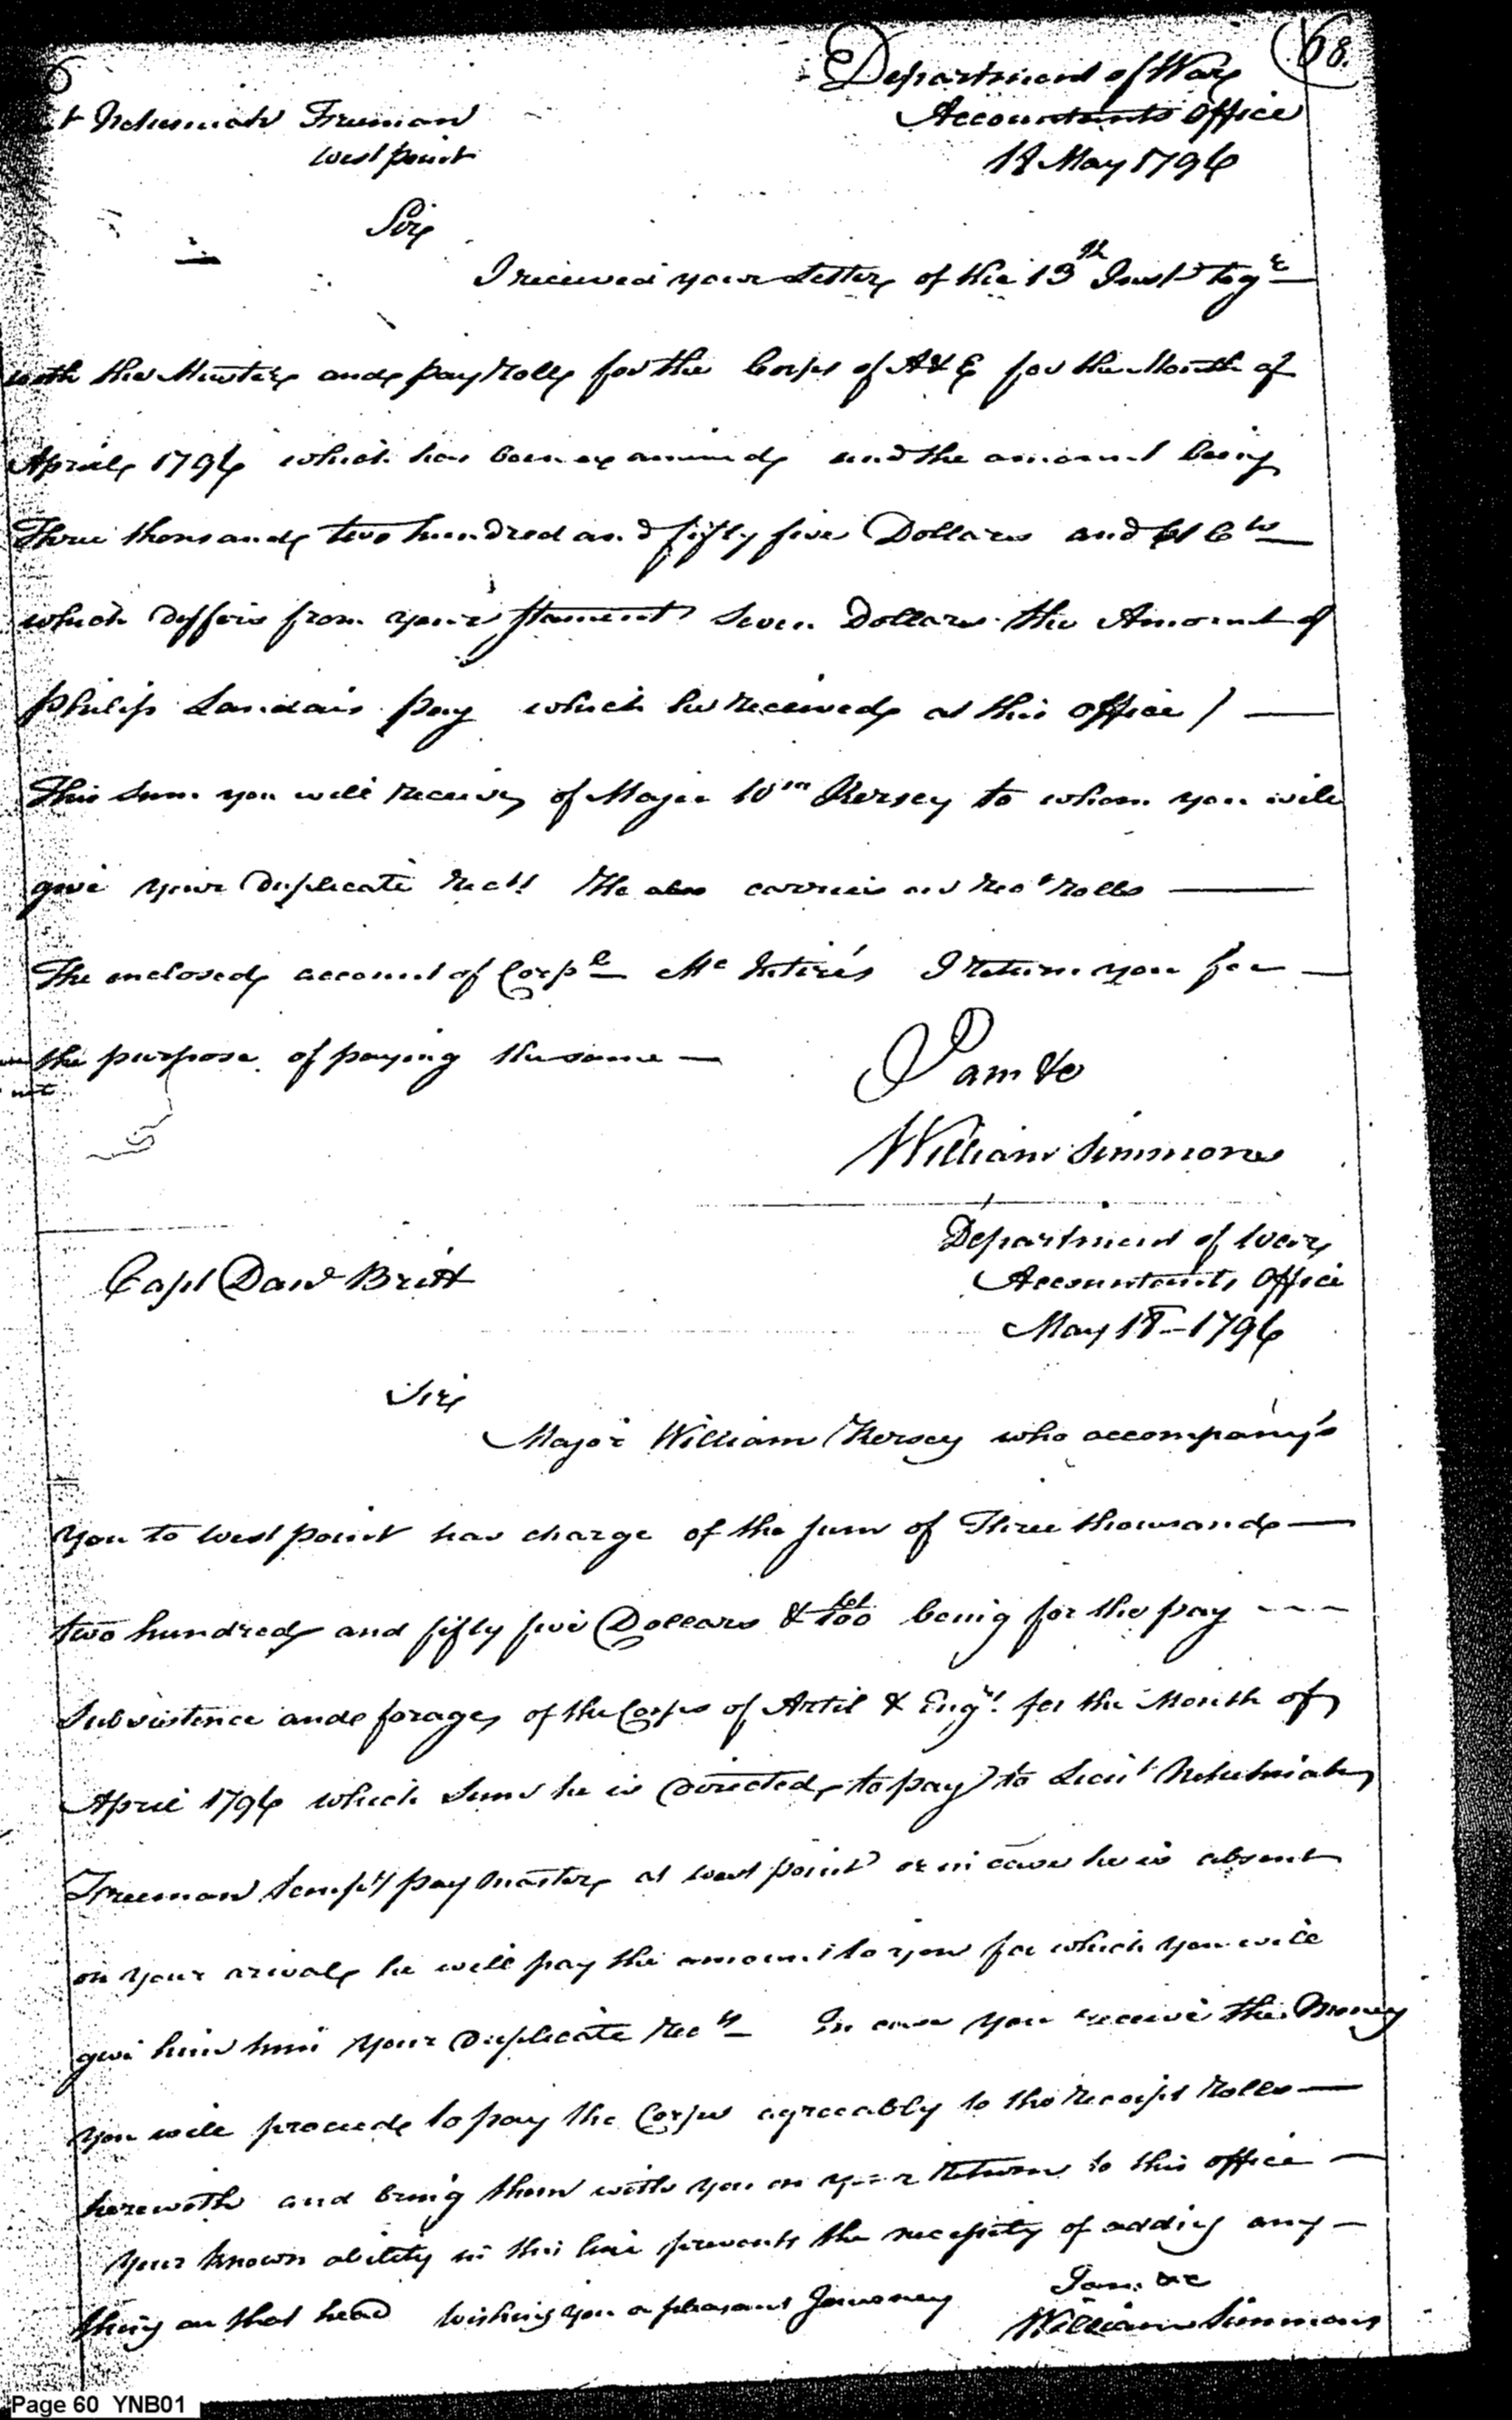 68.
Department of War
Accountants Office
18 May 1796
t Nehemiah Freeman
West point
Sir
I received your Letter of the 13th Inst togr
with the Muster and pay Rolls for the Corps of A & E for the Month of
April 1796 which has been examined and the amount being
Three thousand two hundred and fifty five Dollars and 61 Cts
which differs from your stament seven Dollars the Amount of
Philip Landais pay which he received at this office )
This sum you will receive of Major Wm Kersey to whom you will
give your Duplicate Rects He also carries on Rect Rolls
The enclosed account of Corpl Mc Intire's I return you for
the purpose of paying the same
I am &c
William Simmons
Department of War
Accountants Office
May 18 - 1796
Capt Davd Britt
Sir
Major William Kersey who accompany's
you to West point has charge of the sum of Three thousand
two hundred and fifty five Dollars & 61/100 being for the pay
Subsistence and forage of the Corps of Artil & Engrs for the Month of
April 1796 which sum he is Directed to pay to Lieut Nehemiah
Freeman tempy pay Master at West point or in case he is absent
on your arival he will pay the amount to you for which you will
give him him your Duplicate Rects In case you receive the Money
you will proceed to pay the Corps agreeably to the Receipt Rolls
herewith and bring them with you on your Return to this office
your known ability in this line prevents the necessity of adding any
thing on that head Wishing you a pleasant Journey
I am &c
William Simmons
Page 60 YNB01